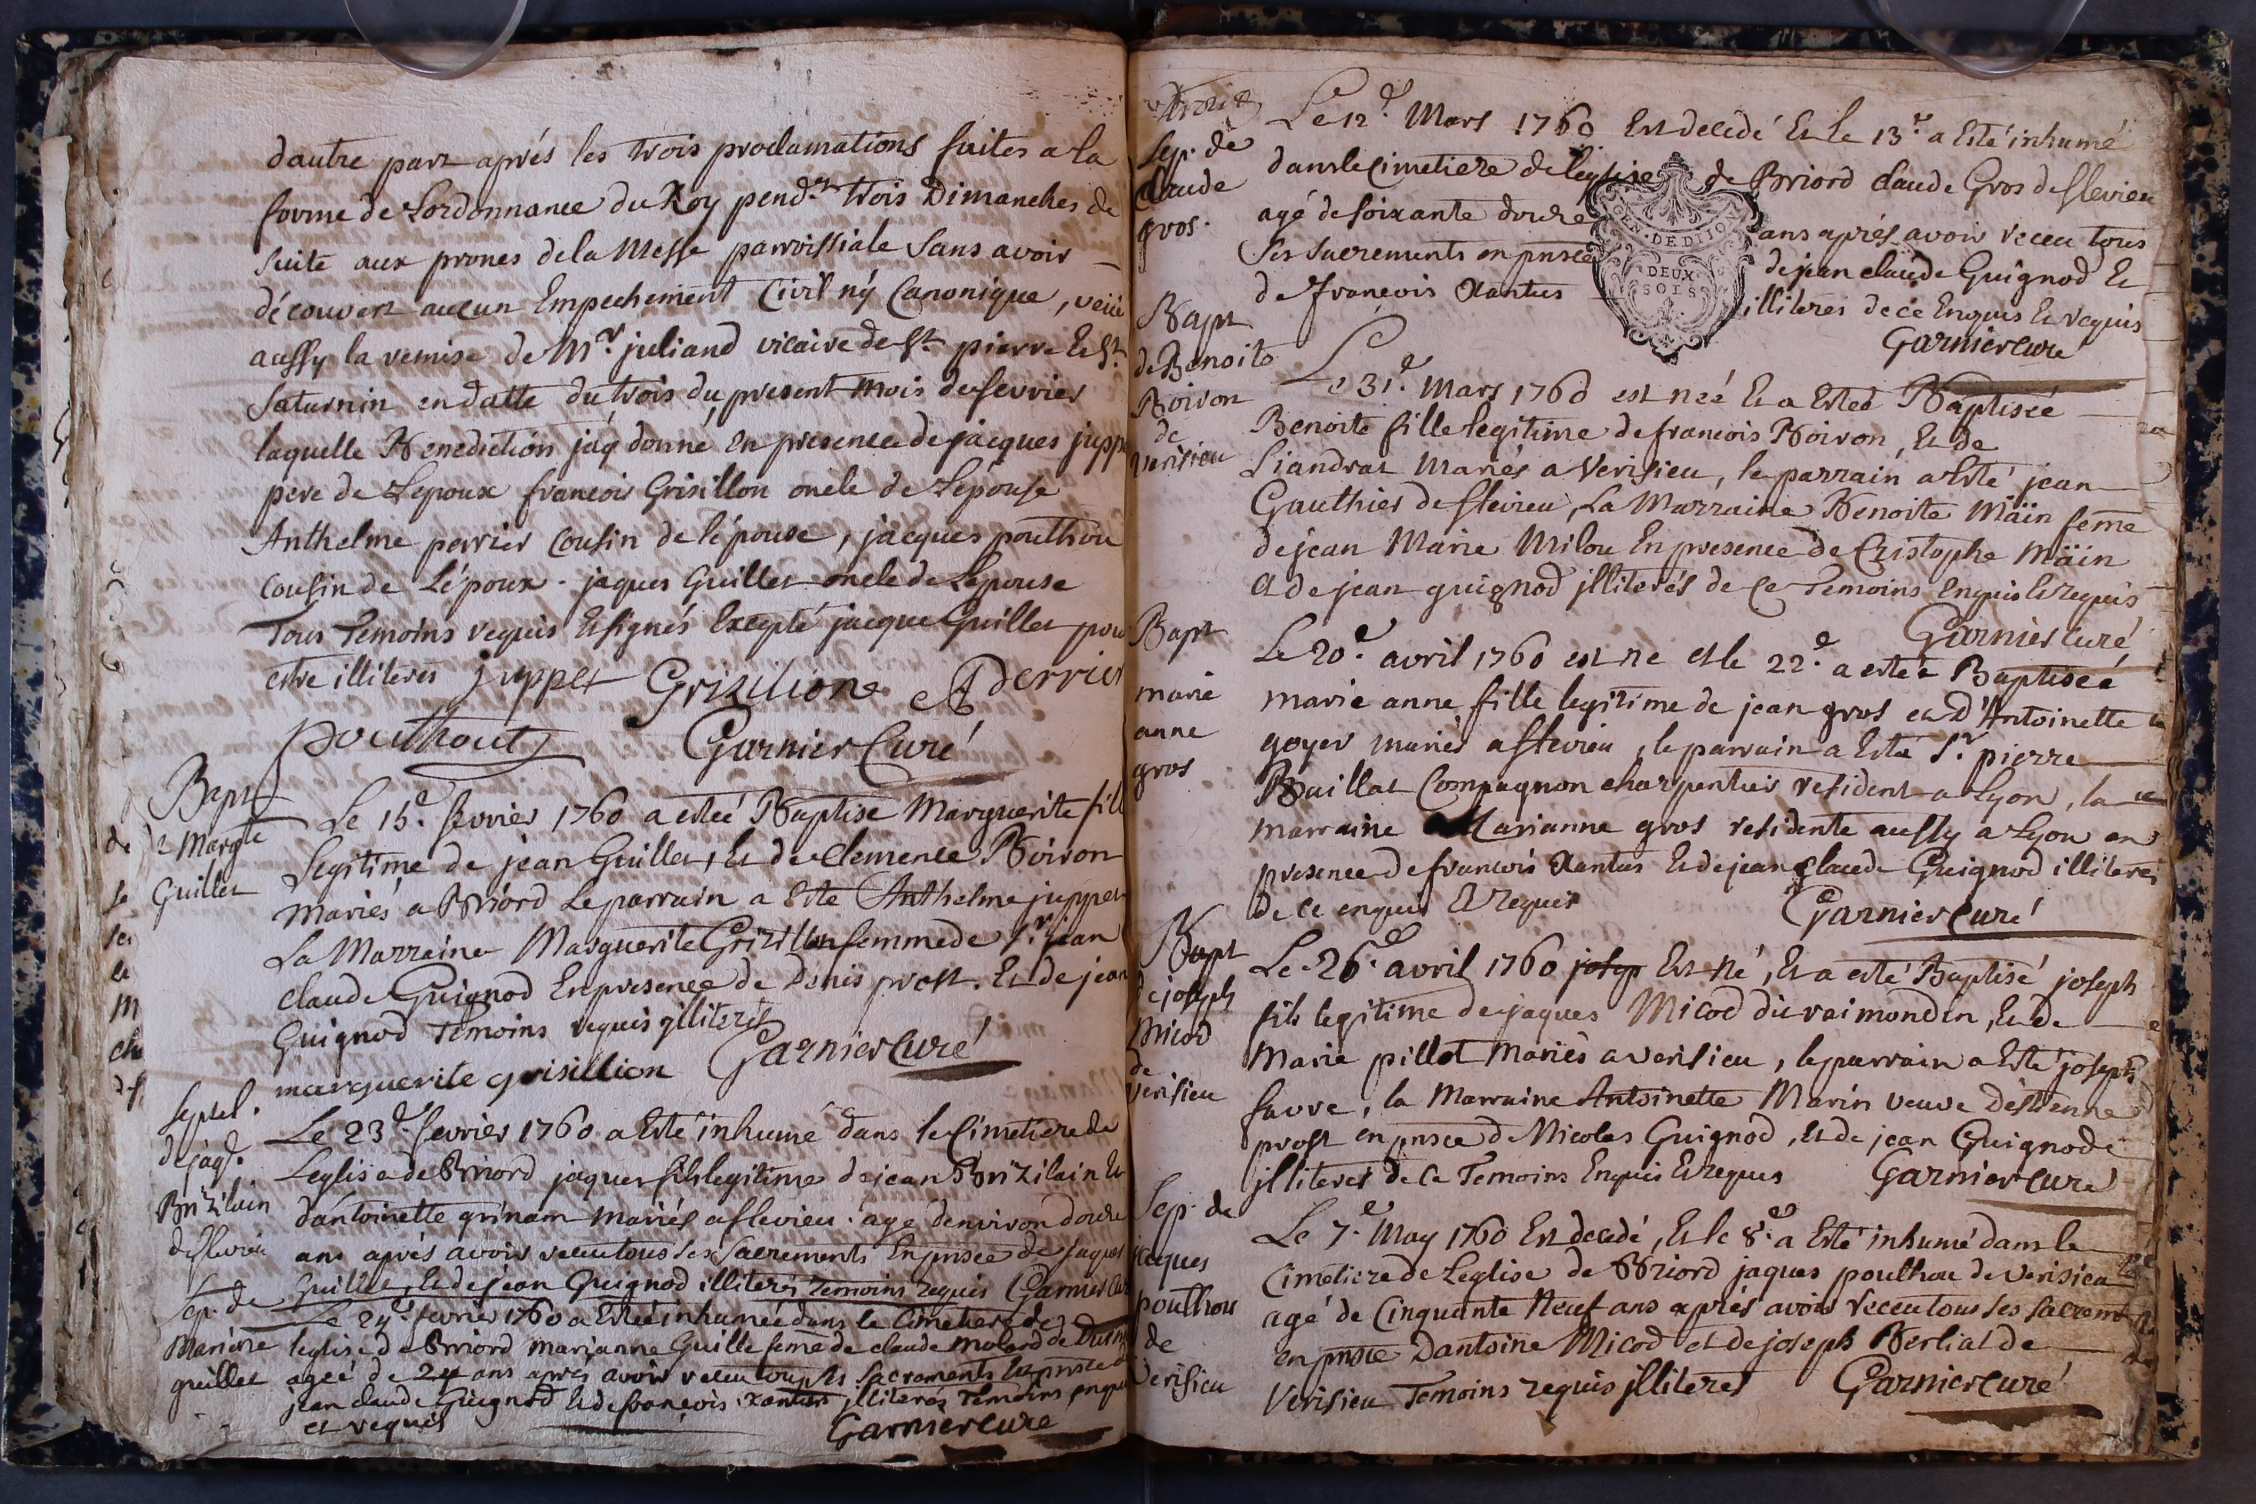 dautre part aprés les trois proclamations faites a la
forme de Lordonnance du Roy pend.nt trois Dimanches de
suite aux prones de la Messe parroissiale Sans avoir
découvert aucun Empechement Civil ný Canonique, veüe
aussy la remise de Mr. juliand vicaire de St. pierre Et St.
Saturnin en datte du trois du present mois de fevrier
laquelle Benediction jaÿ donné En presence de jacques juppet
pere de Lepoux francois Grisillon oncle de Lépouse
Anthelme perrier Cousin de lépouse, jacques pouthou
cousin de Lépoux. jaques Guillet oncle de Lepouse
Tous Temoins requis Et signés Excepté jacque Guillet pour
estre illiteres juppet Grisilione A perrier
pouthout Garnier Curé
Bapt
de Margte
Guillet
Le 15.e fevrier 1760 a estéé Baptise Marguerite fill
Legitime de jean Guillet, Et de Clemence Boiron
Mariés a Briord Le parrain a Esté Anthelme juppet
La Marraine Marguerite Grizillon femme de Sr. jean
claude Guignod En presence de Denis prost. Et de jean
Guignod Temoins requis illiteres
marguerite grisillion Garnier Curé
Sepul.
de jaq.
Brizilain
de flevieu
Le 23.e fevrier 1760 a Esté inhumé dans le Cimetiere de
Leglise de Briord jaques fils legitime de jean Brizilain Et
dantoinette grinam mariés a flevieu. agé denviron douze
ans aprés avoir receu tous ses Sacrements En pnsce de jaques
Guillet, Et de jean Guignod illiterés temoins requis Garnier Cur
Sep. de
Mariane
guillet
Le 24.e fevrier 1760 a Estéé inhumée dans le Cimetiere de
leglise de Briord marianne Guille feme de claude molard de
ageé de 24 ans aprés avoir receu tous ses Sacrements En pnsce d
jean claude Guignod Et de francois Xantus illiterés Temoins enquis
et requis Garnier Cure
Sep. de
Claude
gros.
Le 12.e Mars 1760 Est decedé Et le 13.e a Esté inhumé
dans le Cimetiere de leglise de Briord claude Gros de flevieu
agé de soixante douze ans aprés avoir receu tous
Ses Sacrements en pnsce de jean claude Guignod Et
de francois Xantus illiteres de ce Enquis Et requis
Garnier Cure
GEN. DE DIJON
DEUX
SOLS
Bapt
de Benoite
Boiron
de
verisieu
Le 31.e Mars 1760 est neé Et a Esteé Baptiseé
Benoite fille legitime de francois Boiron, Et de
Liandrat Mariés a Verisieu, le parrain a Esté jean
Gauthier de flevieu, La Marraine Benoite Maïn feme
de jean Marie Milou En presence de Cristophe Maïn
Et de jean guignod jlliterés de Ce Temoins Enquis Et requis
Garnier Curé
Bapt
marie
anne
gros
Le 20.e avril 1760 est ne et le 22.e a esteé Baptiseé
marie anne fille legitime de jean gros et D'Antoinette
goyer mariés a flevieu, le parrain a Esté Sr. pierre
Baillat Compagnon charpentier resident a Lyon, la
marraine Marianne gros residente aussy a Lyon en
presence de francois Xantus Et de jean claude Guignod illiteres
de ce enquis Et requis Garnier Curé
Bapt
de joseph
Micod
de
verisieu
Le 26.e avril 1760 josep Est Né, Et a esté Baptisé joseph
fils legitime de jaques Micod dit raimondin, Et de
Marie pillot Mariés a verisieu, le parrain a Esté joseph
favre, la Marraine Antoinette Marin veuve détienne
prost en pnsce de Nicolas Guignod, Et de jean Guignod
jlliteres de Ce Temoins Enquis Et requis Garnier Cure
Sep. de
jaques
pouthou
de
Verisieu
Le 7.e May 1760 Est decedé, Et le 8.e a Esté inhumé dans le
Cimetiere de Leglise de Briord jaques pouthou de verisieu
agé de Cinquante Neuf ans aprés avoir receu tous ses sacremt
en pnsce Dantoine Micod et de joseph Berliat de
Verisieu Temoins requis jlliteres Garnier Curé